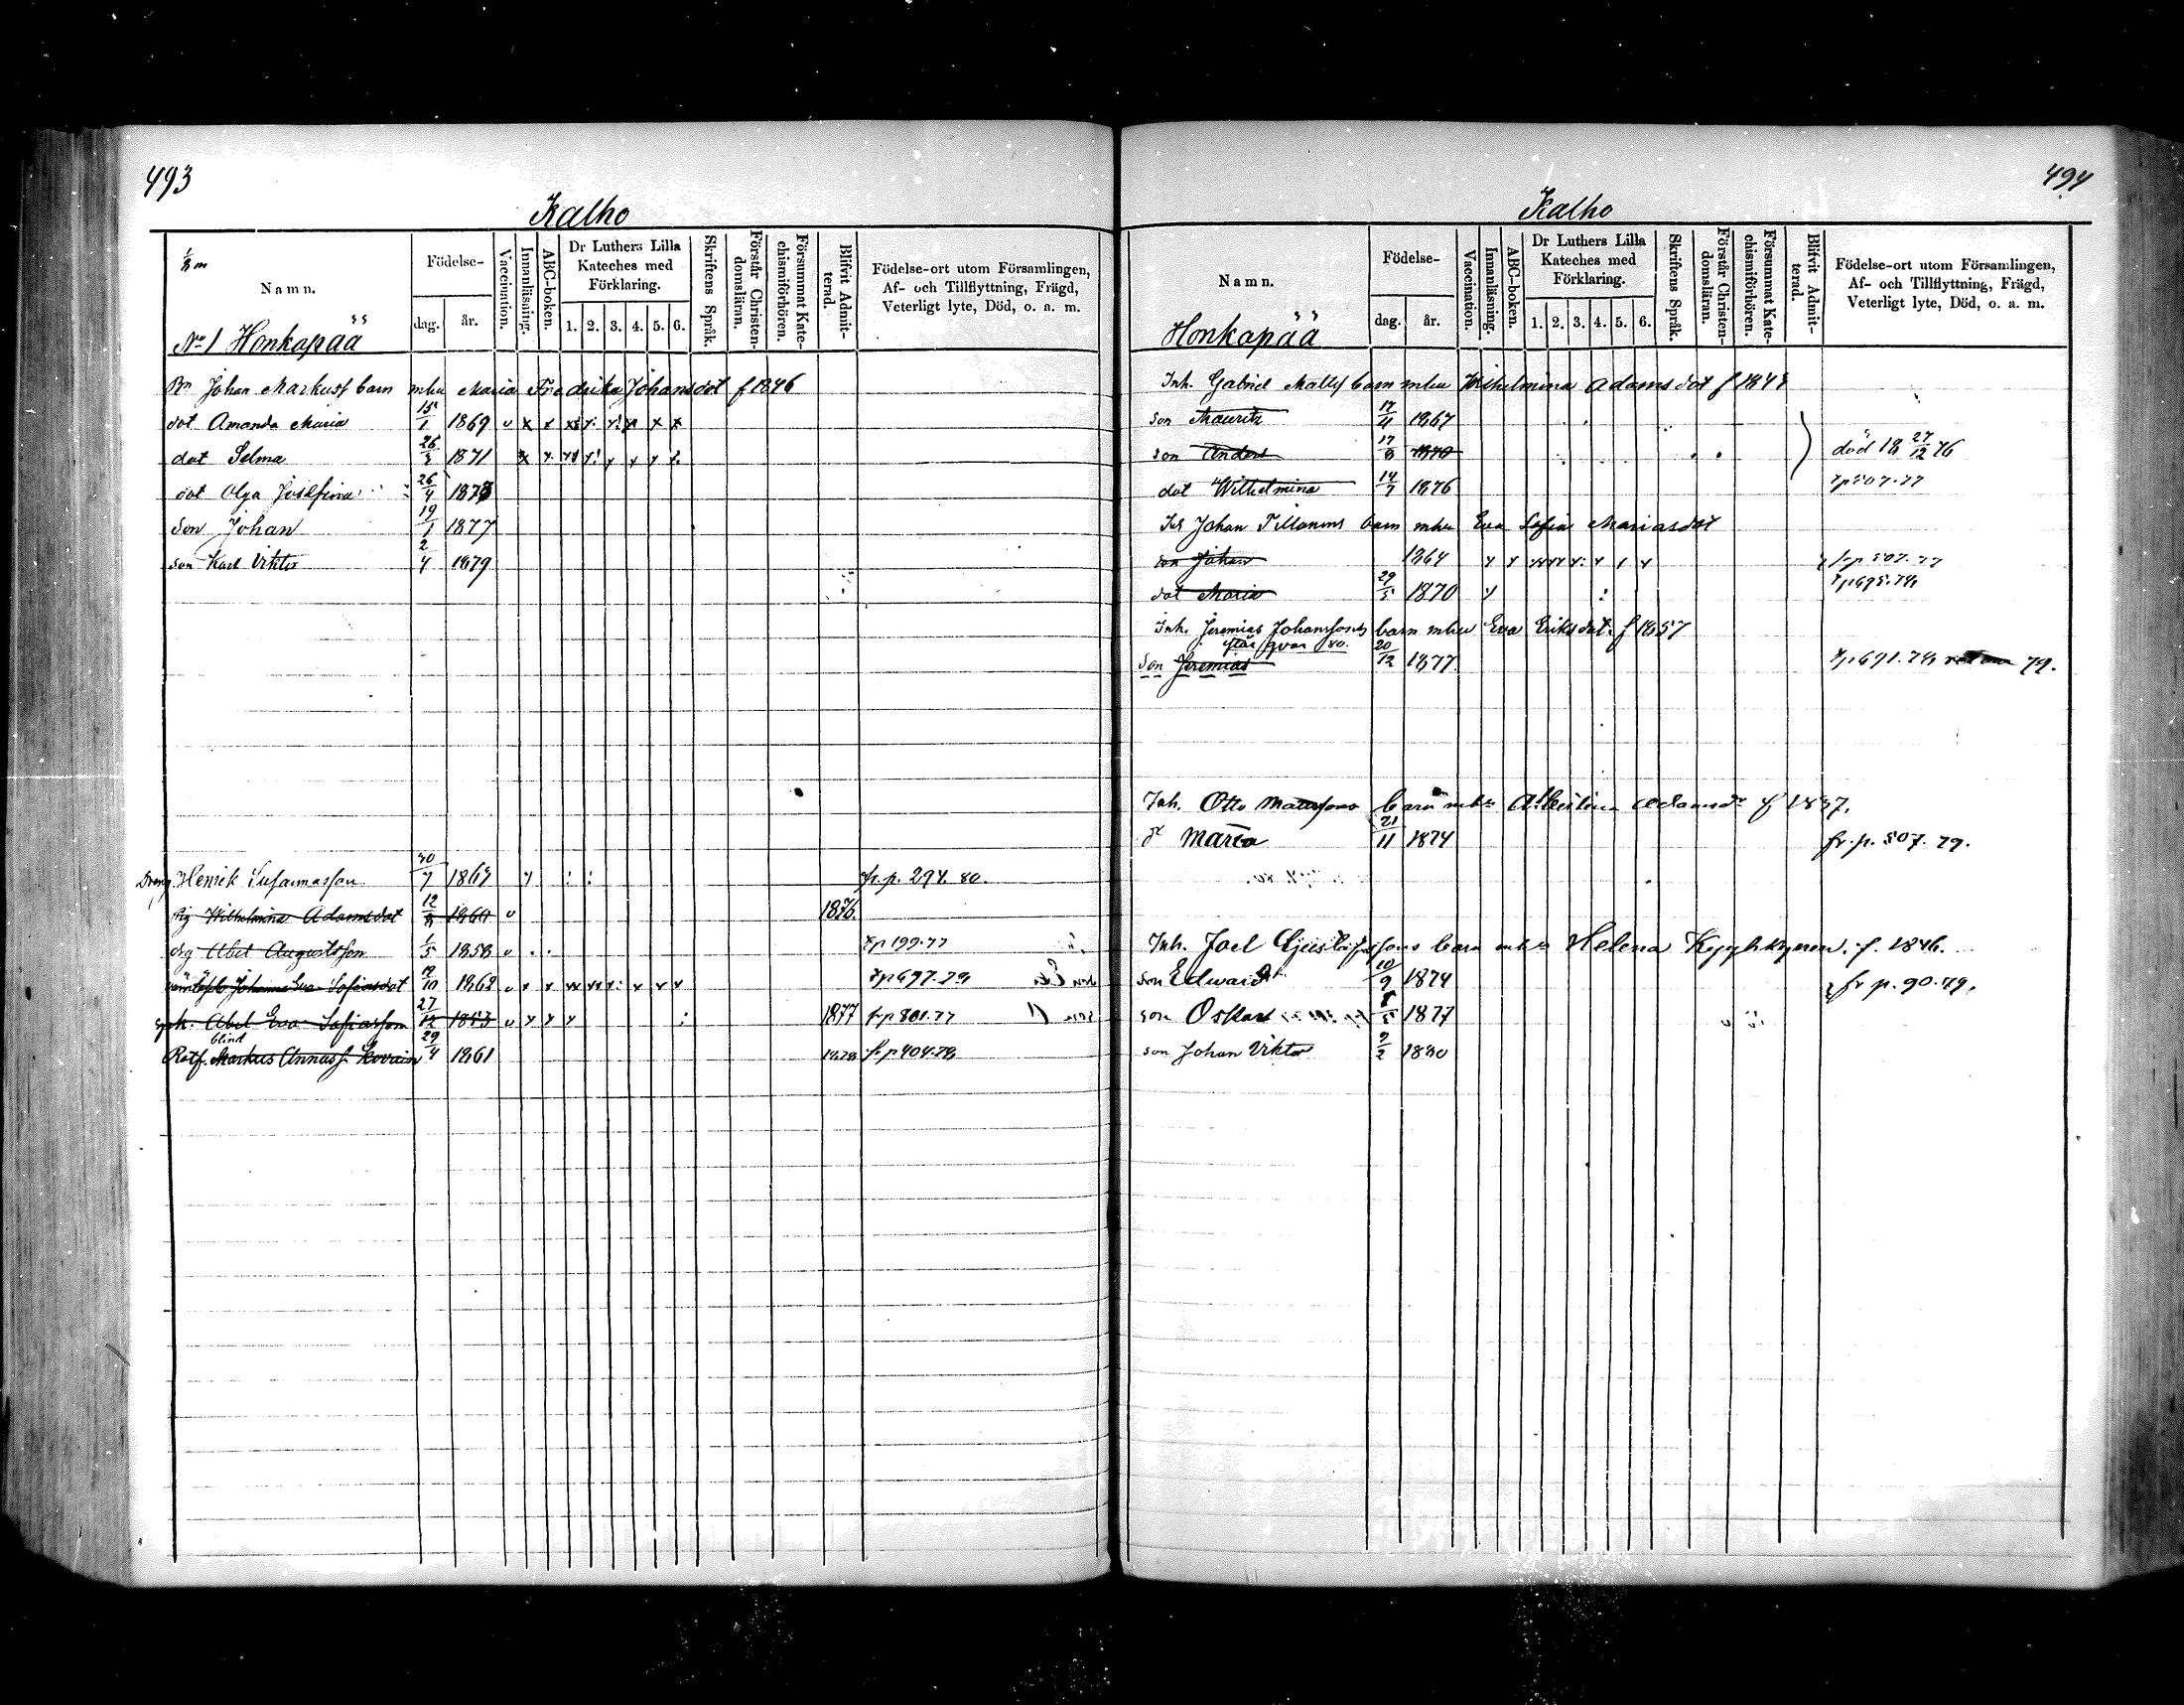 493
Kalho
1/8 m
Namn.
Födelse-
dag.
år.
Vaccination.
Innanläsning.
ABC-boken.
Dr Luthers Lilla
Kateches med
Förklaring.
1. 2. 3. 4. 5. 6.
Skriftens Språk.
Förstår Christen-
domsläran.
Försummat Kate-
chismiförhören.
Blifvit Admit-
terad.
Födelse-ort utom Församlingen,
Af- och Tillflyttning, Frägd,
Veterligt lyte, Död, o. a. m.
No 1 Honkapää
Bn Johan Markuss barn mhu Maria Fredrika Johansdot f 1846
dot Amanda Maria 15/1 1869 v x x x x x x
dot Selma 26/3 1871 x x
dot Olga Josefina 26/4 1873
Son Johan 19/1 1877
son Karl Viktor 2/4 1879
Dreng Henrik Susannasson 30/7 186 fr. p. 294. 80.
pig Wilhelmina Adamsdot 12 1860 v 1876
drg Abel Augustsson 1/5 1858 v r p 199. 77
Johanna Eva Sofiasdot 10 1862 v x x r p 697. 78
Abel Eva Sofiasson 27/12 1853 v x x x 1877 fr p 801. 77
blind
Rotf. Markus Annass. 29/4 1861 1878 fr p 404. 78
494
Kalho
Namn.
Födelse-
dag.
år.
Vaccination.
Innanläsning.
ABC-boken.
Dr Luthers Lilla
Kateches med
Förklaring.
1. 2. 3. 4. 5. 6.
Skriftens Språk.
Förstår Christen-
domsläran.
Försummat Kate-
chismiförhören.
Blifvit Admit-
terad.
Födelse-ort utom Församlingen,
Af- och Tillflyttning, Frägd,
Veterligt lyte, Död, o. a. m.
Honkapää
Inh. Gabriel Mattss barn mhu Wilhelmina Adamsdot f 184
son Mauritz 17/4 1867
son Anders 17/8 1870 död 18 27/12 76
dot Wilhelmina 14/7 1876 r p 507. 77
Inh Johan Tillanens barn mhu Eva Sofia Mariasdot
son Johan 1864 fr p 507. 77
dot Maria 29/5 1870 r p 695. 78
Inh. Jeremias Johanssons barn mhu Eva Eriksdot. f 1857
står qvar 80.
Son Jeremias 20/12 1877 r p 691. 78 79.
Inh. Otto Matssons barn mhu Albertina Adamsdr f 1837.
dr Maria 21/11 1874 fr. p. 507. 79.
Inh. Joel barn mhu Helena f. 1846.
son Edward 10/9 1874 fr p. 90. 79.
son Oskar 1877
son Johan Viktor 9/2 1880